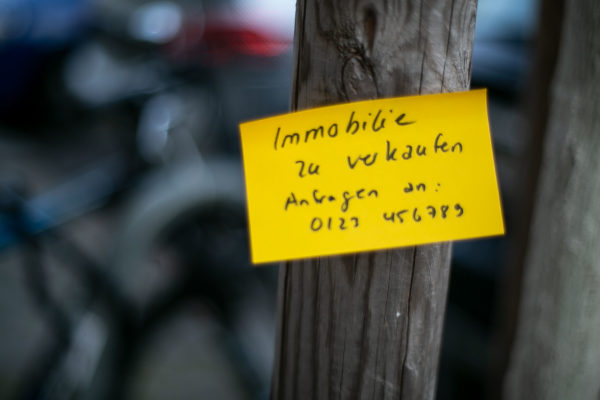 Immobilie
zu verkaufen
Anfragen an:
0123 456789